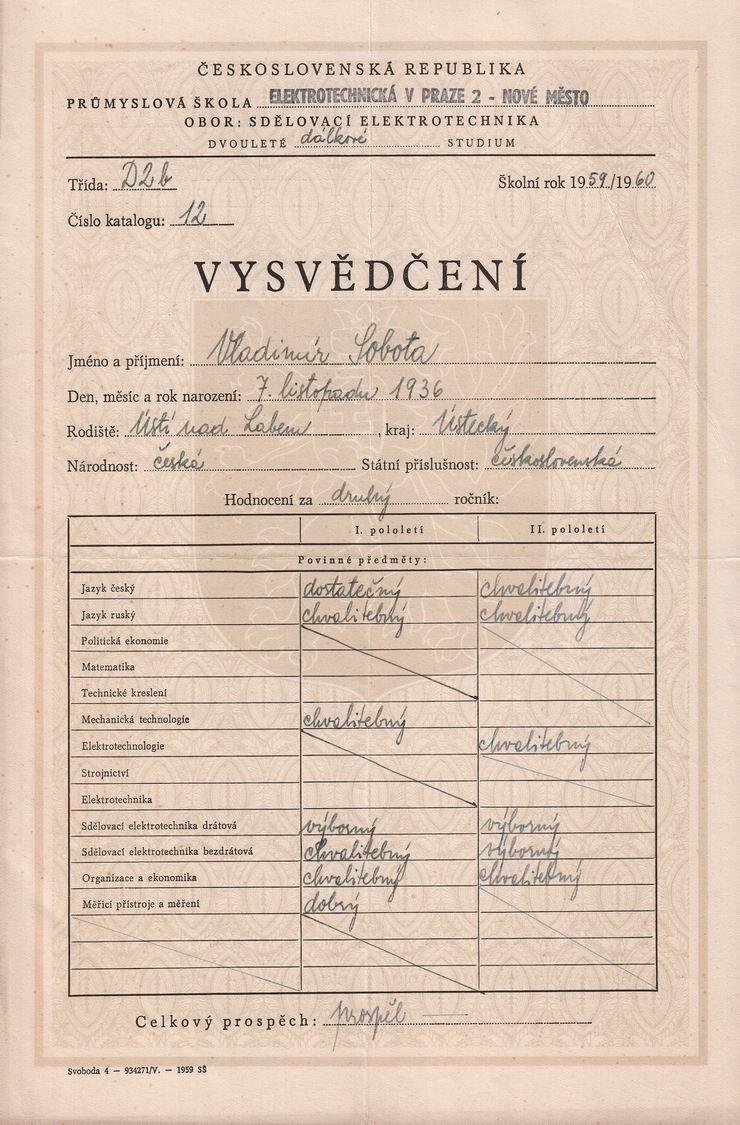 ČESKOSLOVENSKÁ REPUBLIKA
PRŮMYSLOVÁ ŠKOLA ELEKTROTECHNICKÁ V PRAZE 2 - NOVÉ MĚSTO
OBOR: SDĚLOVACÍ ELEKTROTECHNIKA
DVOULETÉ dálkové STUDIUM
Třída: D2b Školní rok 1959/1960
Číslo katalogu: 12
VYSVĚDČENÍ
Jméno a příjmení: Vladimír Sobota
Den, měsíc a rok narození: 7. listopadu 1936
Rodiště: Ústí nad Labem, kraj: Ústecký
Národnost: česká Státní příslušnost: československá
Hodnocení za druhý ročník:
I. pololetí II. pololetí
Povinné předměty:
Jazyk český dostatečný chvalitebný
Jazyk ruský chvalitebný chvalitebný
Politická ekonomie
Matematika
Technické kreslení
Mechanická technologie chvalitebný
Elektrotechnologie chvalitebný
Strojnictví
Elektrotechnika
Sdělovací elektrotechnika drátová výborný výborný
Sdělovací elektrotechnika bezdrátová chvalitebný výborný
Organizace a ekonomika chvalitebný chvalitebný
Měřicí přístroje a měření dobrý
Celkový prospěch: prospěl —
Svoboda 4 — 934271/V. — 1959 SŠ